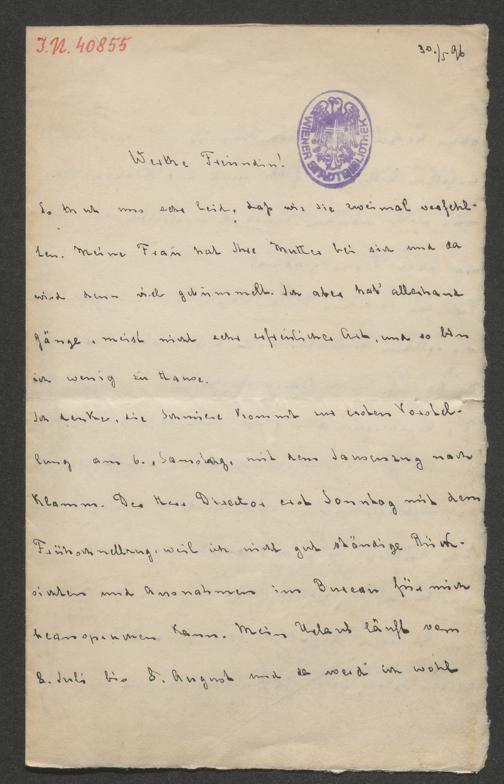 I.N. 40855
30./5 96
WIENER STADTBIBLIOTHEK
Werthe Freundin!
Es thut uns sehr leid, daß wir Sie zweimal verfehl-
ten. Meine Frau hat Ihre Mutter bei sich und da
wird denn viel gebummelt. Ich aber hab' allerhand
Gänge, meist nicht sehr erfreulicher Art, und so bin
ich wenig zu Hause.
Ich denke, die Schmiere kommt zur ersten Vorstel-
lung am 6., Samstag, mit dem nach
Klamm. Der Herr Director erst Sonntag mit dem
Frühschnellzug, weil ich nicht gut ständige Rück-
sichten und Ausnahmen im Bureau für mich
beanspruchen kann. Mein Urlaub läuft vom
8. Juli bis 8. August und da werd' ich wohl